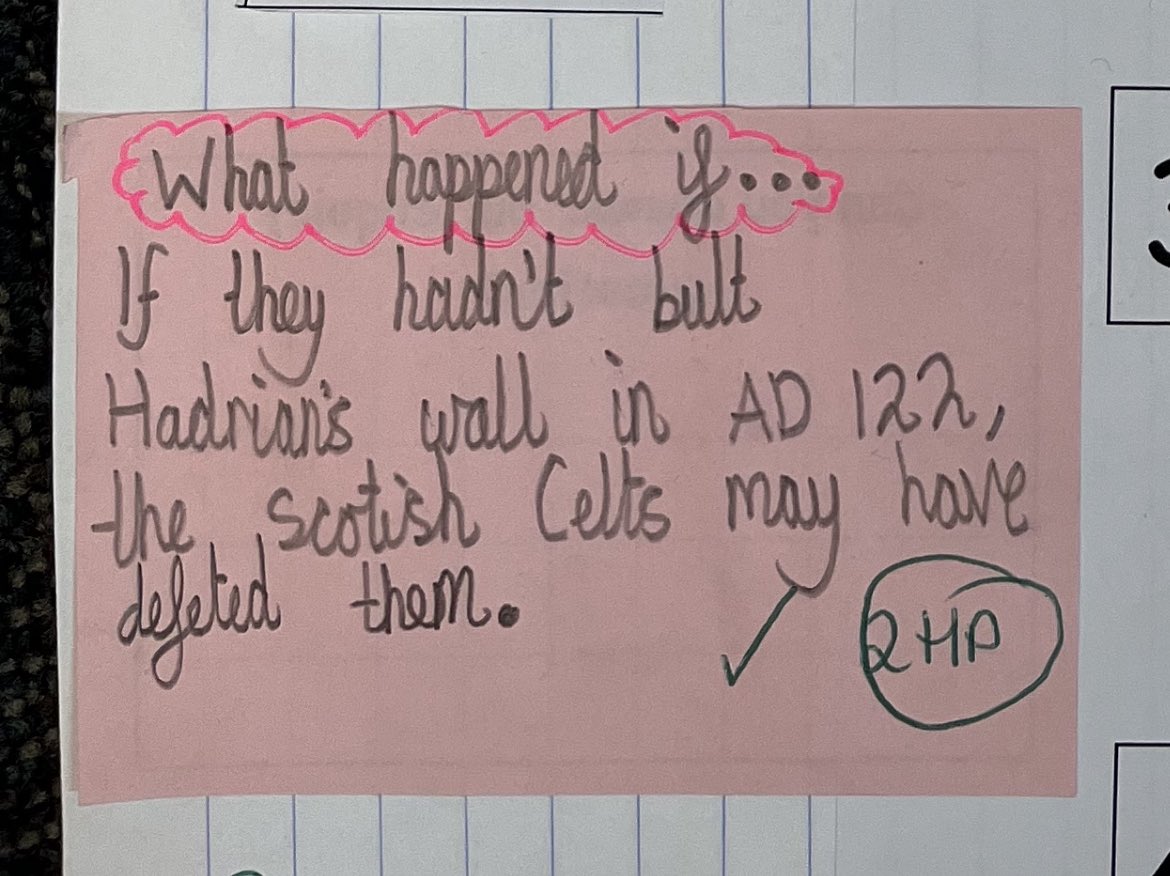 What happened if...
If they hadn't bult
Hadrian's wall in AD 122,
the scotish Celts may have
defeted them.
2HP